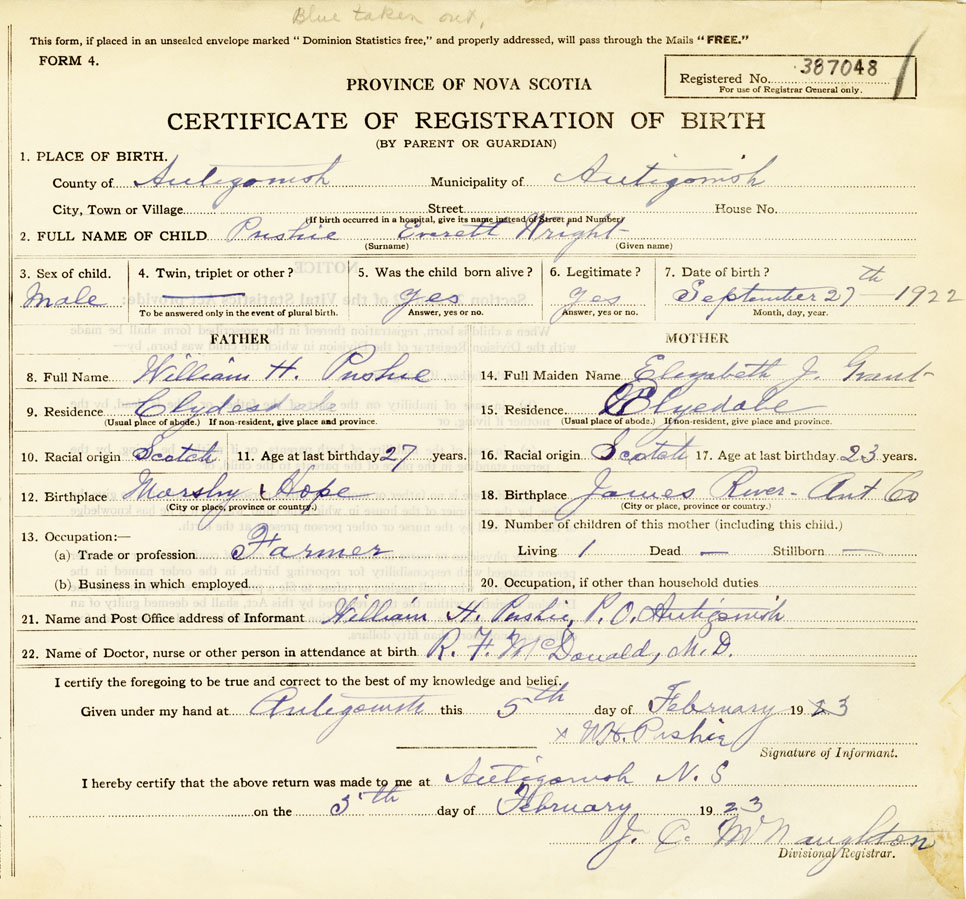 Blue taken out.
This form, if placed in an unsealed envelope marked "Dominion Statistics free," and properly addressed, will pass through the Mails "FREE."
FORM 4.
Registered No. 387048
For use of Registrar General only.
PROVINCE OF NOVA SCOTIA
CERTIFICATE OF REGISTRATION OF BIRTH
(BY PARENT OR GUARDIAN)
1. PLACE OF BIRTH.
County of Antigonish Municipality of Antigonish
City, Town or Village Street House No.
(If birth occurred in a hospital, give its name instead of Street and Number)
2. FULL NAME OF CHILD Pushie Everett Wright
(Surname) (Given name)
3. Sex of child. 4. Twin, triplet or other? 5. Was the child born alive? 6. Legitimate? 7. Date of birth?
Male — yes yes September 27th 1922
To be answered only in the event of plural birth. Answer, yes or no. Answer, yes or no. Month, day, year.
FATHER MOTHER
8. Full Name William H. Pushie 14. Full Maiden Name Elizabeth J. Grant
9. Residence Clydesdale 15. Residence. Clyedale
(Usual place of abode.) If non-resident, give place and province. (Usual place of abode.) If non-resident, give place and province.
10. Racial origin Scotch 11. Age at last birthday 27 years. 16. Racial origin Scotch 17. Age at last birthday 23 years.
12. Birthplace Marshy Hope 18. Birthplace James River - Ant Co
(City or place, province or country.) (City or place, province or country.)
19. Number of children of this mother (including this child.)
13. Occupation:—
(a) Trade or profession Farmer Living 1 Dead — Stillborn —
(b) Business in which employed 20. Occupation, if other than household duties
21. Name and Post Office address of Informant William H. Pushie, P.O. Antigonish
22. Name of Doctor, nurse or other person in attendance at birth R. F. McDonald, M.D.
I certify the foregoing to be true and correct to the best of my knowledge and belief.
Given under my hand at Antigonish this 5th day of February 1923
x W.H. Pushie
Signature of Informant.
I hereby certify that the above return was made to me at Antigonish N.S
on the 5th day of February 1923
J. C. McNaughton
Divisional Registrar.